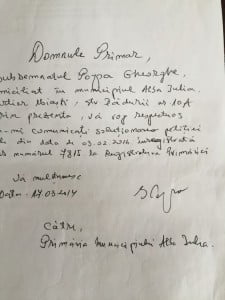 Domnule Primar,
Subsemnatul Popa Gheorghe,
domiciliat în municipiul Alba Iulia,
str Pădurii nr 10A
prin prezenta, vă rog respectuos
să-mi comunicați soluționarea petiției
din data de 03.02.2014 înregistrată
numărul 7815 la Registratura Primăriei
Vă mulțumesc
Data: 17.03.2014
Către,
Primăria Municipiului Alba Iulia.